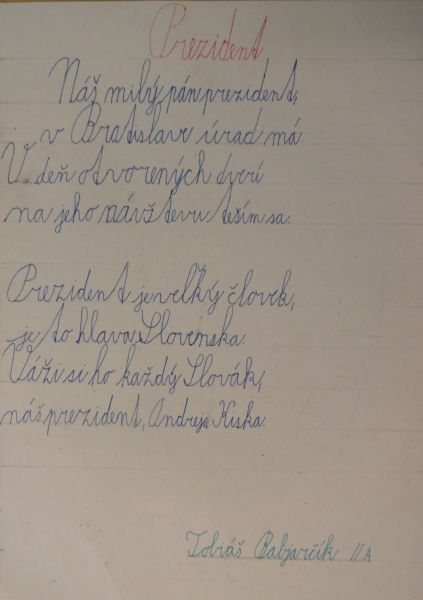 Prezident
Náš milý pán prezident,
v Bratislave úrad má.
V deň otvorených dverí
na jeho návštevu teším sa.
Prezident je veľký človek,
je to hlava Slovenska.
Váži si ho každý Slovák,
náš prezident, Andrej Kiska.
Tobiáš Babjarčík II.A